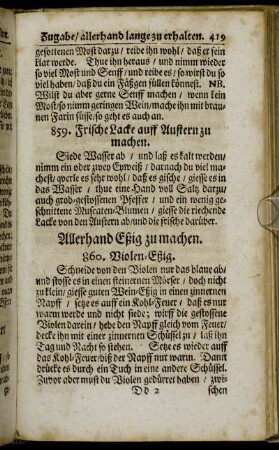 Zugabe/ allerhand lange zu erhalten. 419
gesottenen Most darzu/ reibe ihn wohl/ daß er fein
klar werde. Thue ihn heraus/ und nimm wieder
so viel Most und Senff/ und reibe es/ so wirst du so
viel haben/ daß du ein Fäßgen füllen könnest. NB.
Wilst du aber gerne Senff machen/ wenn kein
Most/ so nimm geringen Wein/ mache ihn mit brau-
nen Farin süsse/ so geht es auch an.
859. Frische Lacke auff Austern zu
machen.
Siede Wasser ab/ und laß es kalt werden/
nimm ein oder zwey Eyweiß/ darnach du viel ma-
chest/ qverle es sehr wohl/ daß es gische/ giesse es in
das Wasser/ thue eine Hand voll Saltz darzu/
auch grob-gestossenen Pfeffer/ und ein wenig ge-
schnittene Muscaten-Blumen/ giesse die riechende
Lacke von den Austern ab/ und die frische darüber.
Allerhand Eßig zu machen.
860. Violen-Eßig.
Schneide von den Violen nur das blaue ab/
und stosse es in einen steinernen Mörser/ doch nicht
zu klein/ giesse guten Wein-Eßig in einen zinnernen
Napff/ setze es auff ein Kohl-Feuer/ daß es nur
warm werde und nicht siede; wirff die gestossene
Violen darein/ hebe den Napff gleich vom Feuer/
decke ihn mit einer zinnernen Schüssel zu/ laß ihn
Tag und Nacht so stehen. Setze es wieder auff
das Kohl-Feuer/ biß der Napff nur warm. Dann
drücke es durch ein Tuch in eine andere Schüssel.
Zuvor aber must du Violen gedürret haben/ zwi-
Dd 2 schen